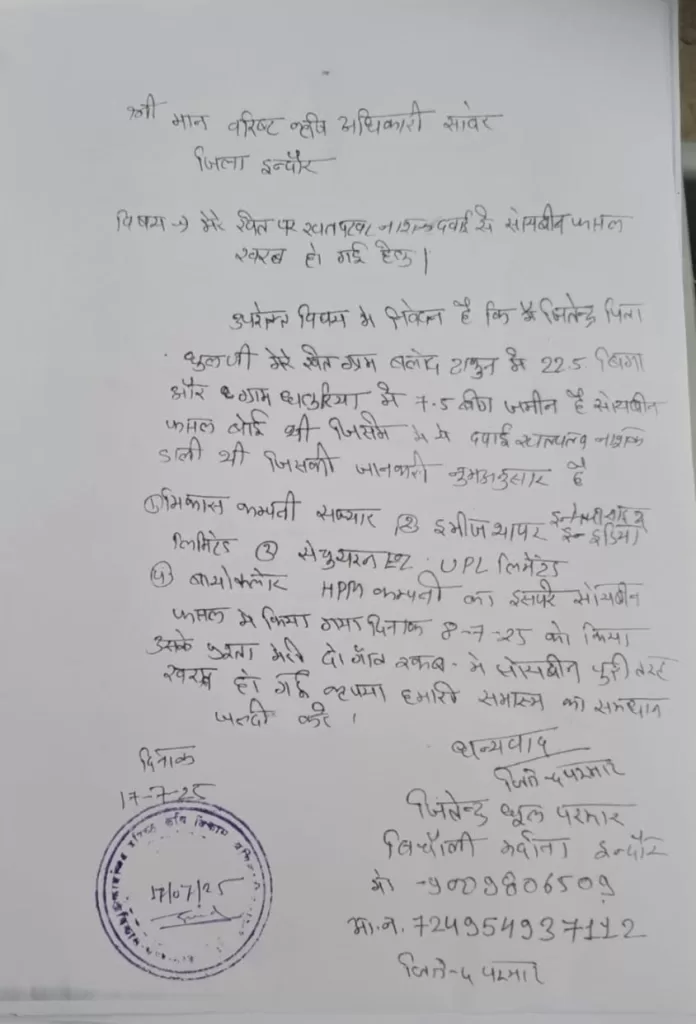 श्री मान वरिष्ट कृषि अधिकारी सांवेर
जिला इन्दौर
विषय → मेरे खेत पर खतपरवार नाशक दवाई से सोयाबीन फसल
खराब हो गई हेतु।
उपरोक्त विषय मे निवेदन है कि मै जितेन्द्र पिता
धुलजी मेरे खेत ग्राम बलोदा टाकुन मे 22.5 बिगा
और ग्राम धतुरिया मे 7.5 बीगा जमीन है सोयाबीन
फसल बोई थी जिसमे मे मे दवाई नाशक
डाली थी जिसकी जानकारी अनुसार है
① कम्पनी ② इमीजाथापर
इन्डिया
लिमिटेड ③ UPL लिमेटेड
④ बायोक्लोर HPM कम्पनी का इसपरे सोयाबीन
फसल मे किया गया दिनांक 8-7-25 को किया
उसके मेरी दो गाँव रकबा मे सोयाबीन पुरी तरह
खराब हो गई कृपया हमारी समास्या का समाधान
जलदी करे।
धन्यवाद
दिनांक
17-7-25
जितेन्द्र परमार
जितेन्द्र धूल परमार
बिचौली मर्दाना इन्दौर
मो -9009806509
भा.न. 724954937112
जितेन्द्र परमार
कृषि विकास
17/07/25